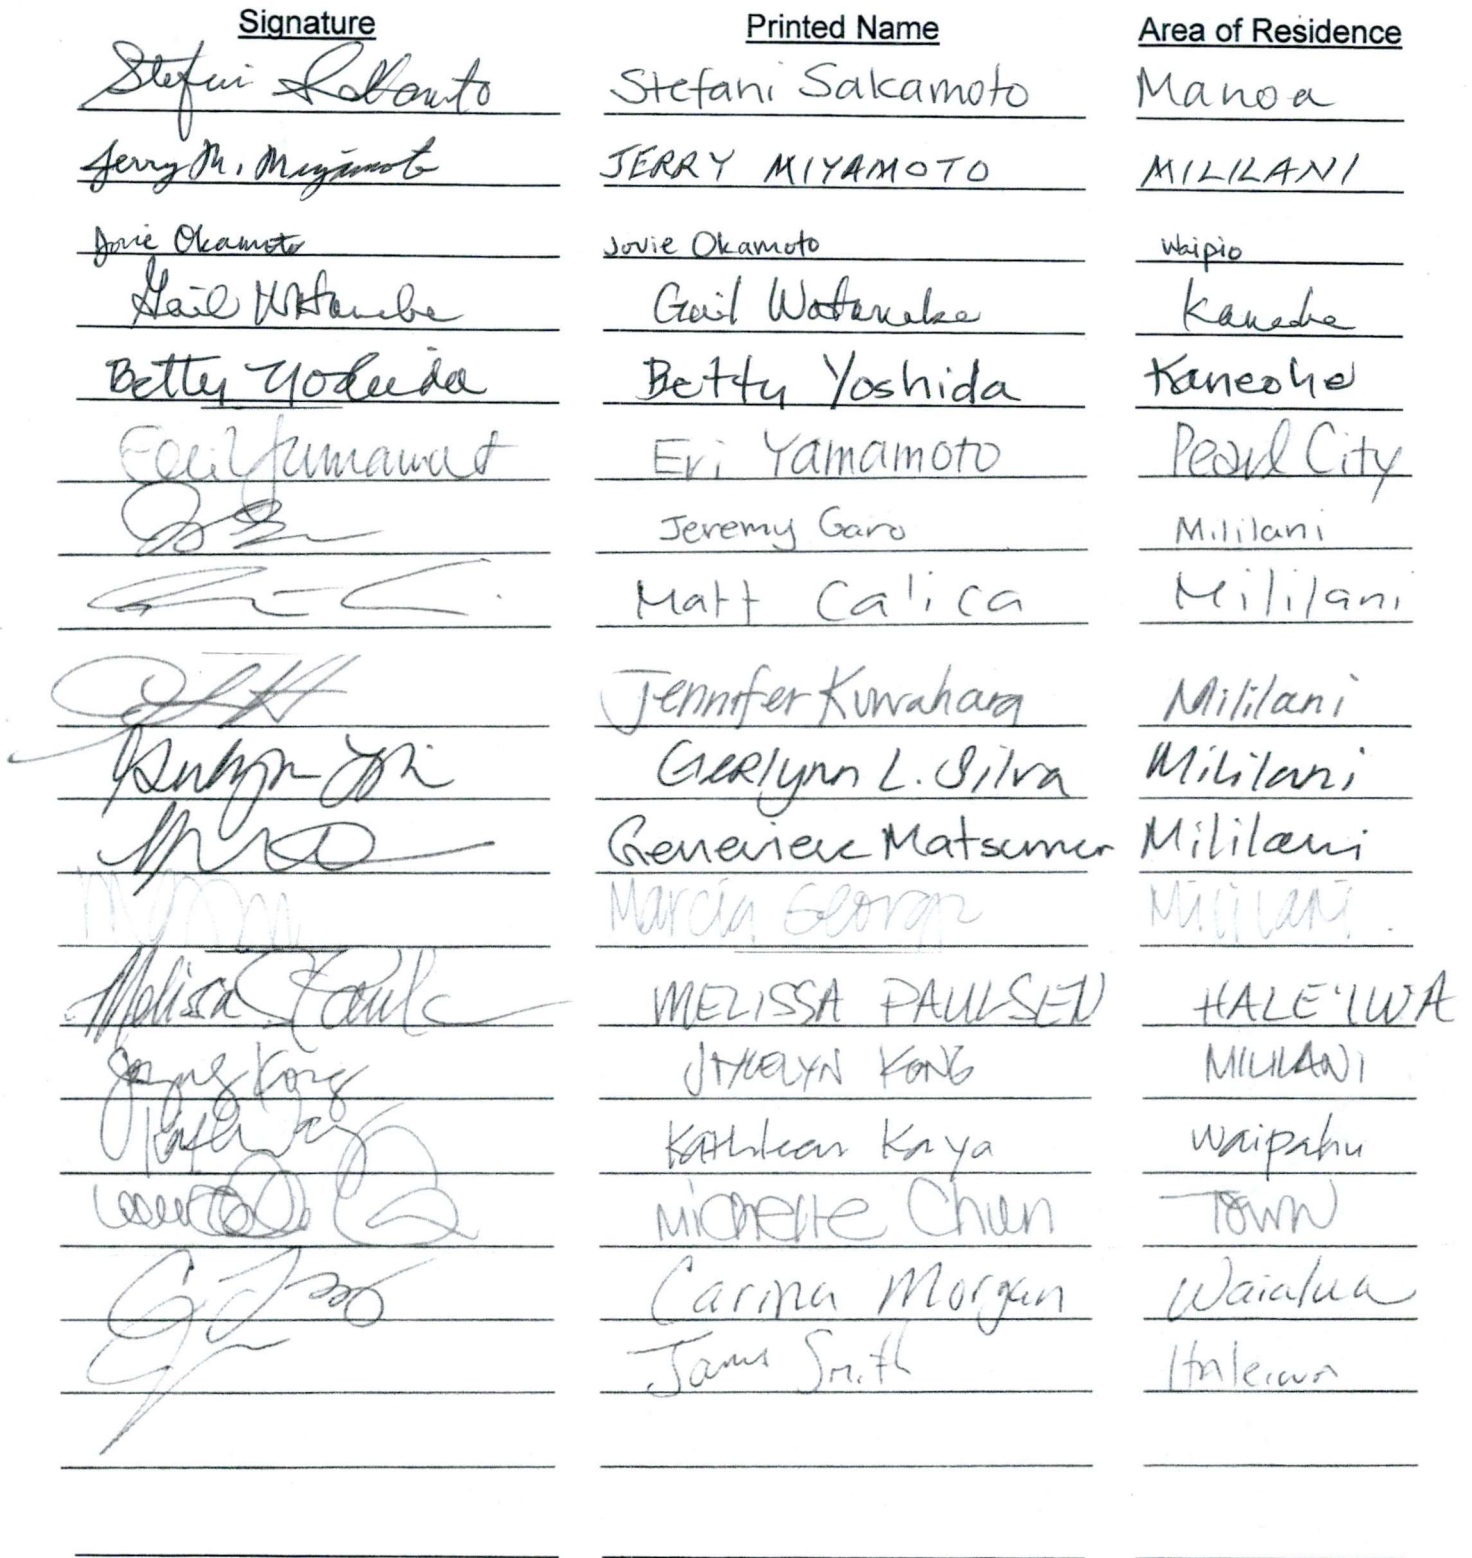 Signature Printed Name Area of Residence
Stefani Sakamoto Stefani Sakamoto Manoa
Jerry M. Miyamoto JERRY MIYAMOTO MILILANI
Jovie Okamoto Jovie Okamoto Waipio
Gail Watanabe Gail Watanabe Kaneohe
Betty Yoshida Betty Yoshida Kaneohe
Eri Yamamoto Pearl City
Jeremy Garo Mililani
Matt Calica Mililani
Jennifer Kuwahara Mililani
Gerlynn L. Silva Mililani
Genevieve Mililani
Marcia George Mililani
Melissa MELISSA PAULSEN HALE'IWA
Kong JAYCELYN KONG MILILANI
Kathleen Kaya Waipahu
Michelle Chun Town
Carina Morgan Waialua
James Smith Haleiwa